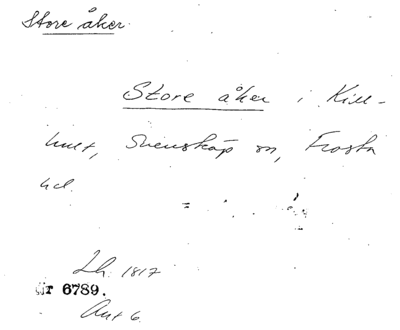 Store åker
Store åker i Kill-
hult, Svensköp sn, Frosta
hd.
Lh. 1817
Nr 6789.
Ant 6